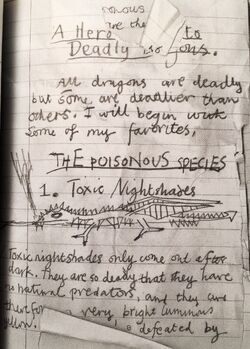 are the
A Hero to
Deadly
All dragons are deadly
but some are deadlier than
others. I will begin with
some of my favorites.
THE POISONOUS SPECIES
1. Toxic Nightshades
Toxic nightshades only come out after
dark. They are so deadly that they have
no natural predators, and they are
therefore a very bright luminous
yellow. defeated by